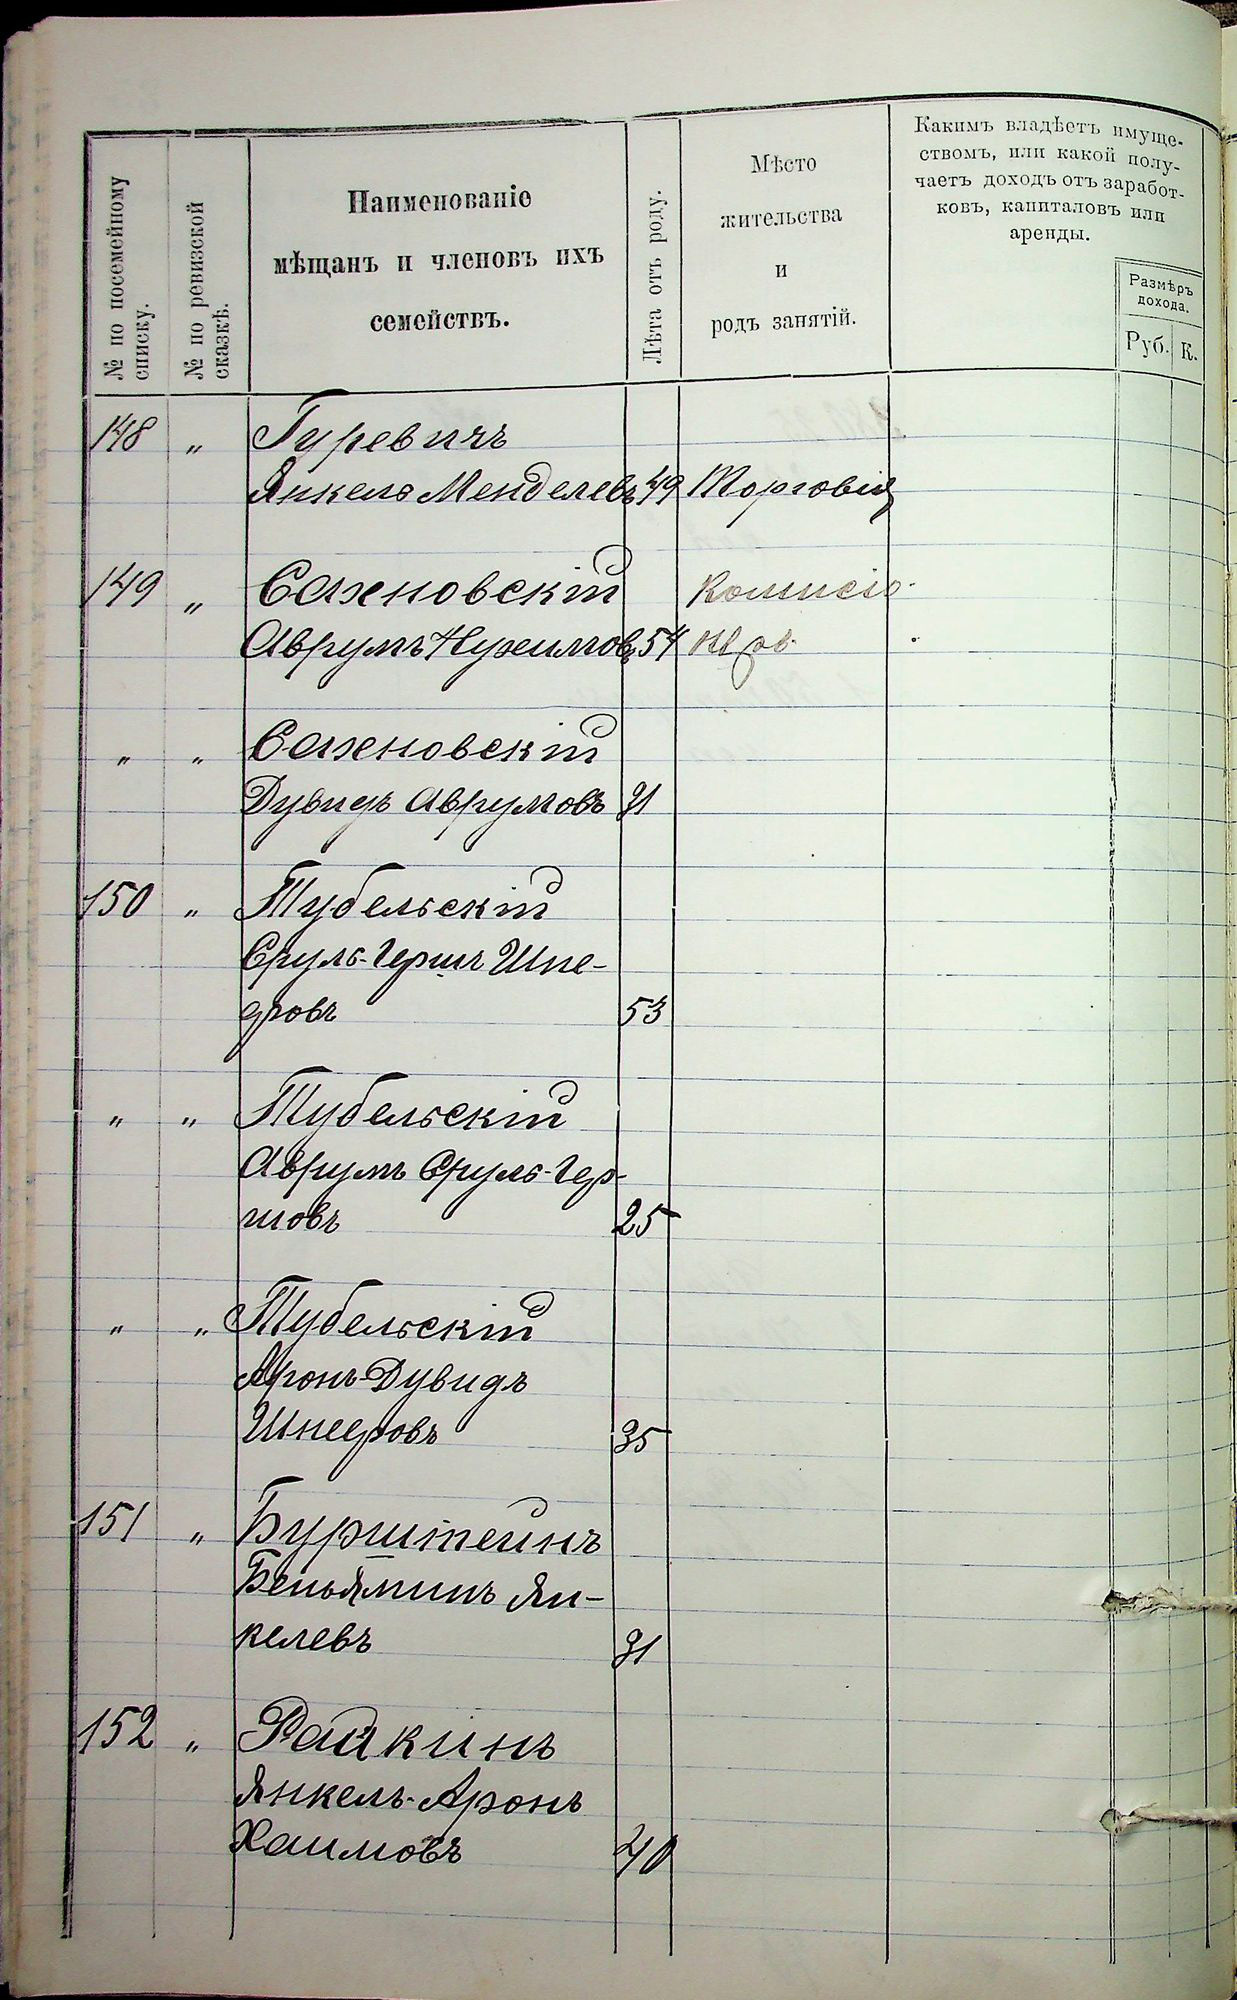 № по посемейному
списку.
№ по ревизской
сказкѣ.
Наименованіе
мѣщанъ и членовъ ихъ
семействъ.
Лѣта отъ роду.
Мѣсто
жительства
и
родъ занятій.
Какимъ владѣетъ имуще-
ствомъ, или какой полу-
чаетъ доходъ отъ заработ-
ковъ, капиталовъ или
аренды.
Размѣръ
дохода.
Руб. К.
148 „ Гуревичъ
Янкель Менделевъ 49 Торговія
149 „ Сахновскій Комисіо-
Аврумъ Нухимовъ 54 неръ
„ „ Сахновскій
Дувидъ Аврумовъ 31
150 „ Тубельскій
Сруль-Гершъ Шне-
ровъ 53
„ „ Тубельскій
Аврумъ Сруль-Гер-
шовъ 25
„ „ Тубельскій
Аронъ-Дувидъ
Шнееровъ 35
151 „ Бурштейнъ
Беньяминъ Ян-
келевъ 31
152 „ Райкинъ
Янкель-Аронъ
Хаимовъ 40